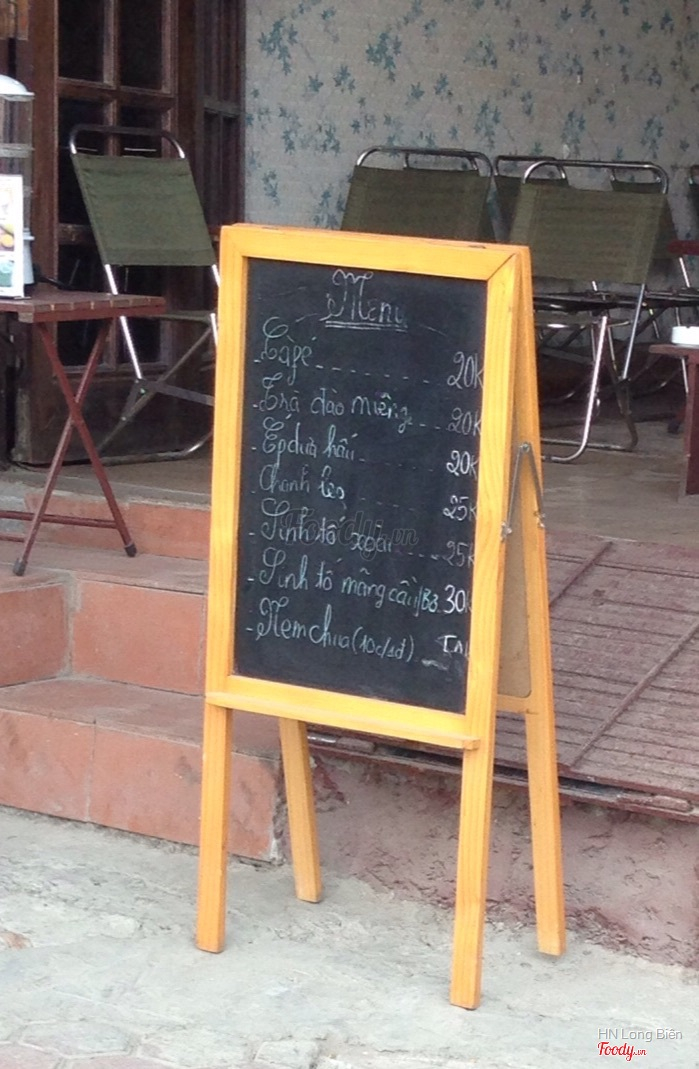 Menu
- Càfé ------- 20K
- Trà đào miếng --- 20K
- Ép dưa hấu ------ 20K
- Chanh leo ------ 25K
- Sinh tố xoài ---- 25K
- Sinh tố mãng cầu/Bơ. 30K
- Nem chua (10c/1đ)
Foody.vn
HN Long Biên
Foody.vn